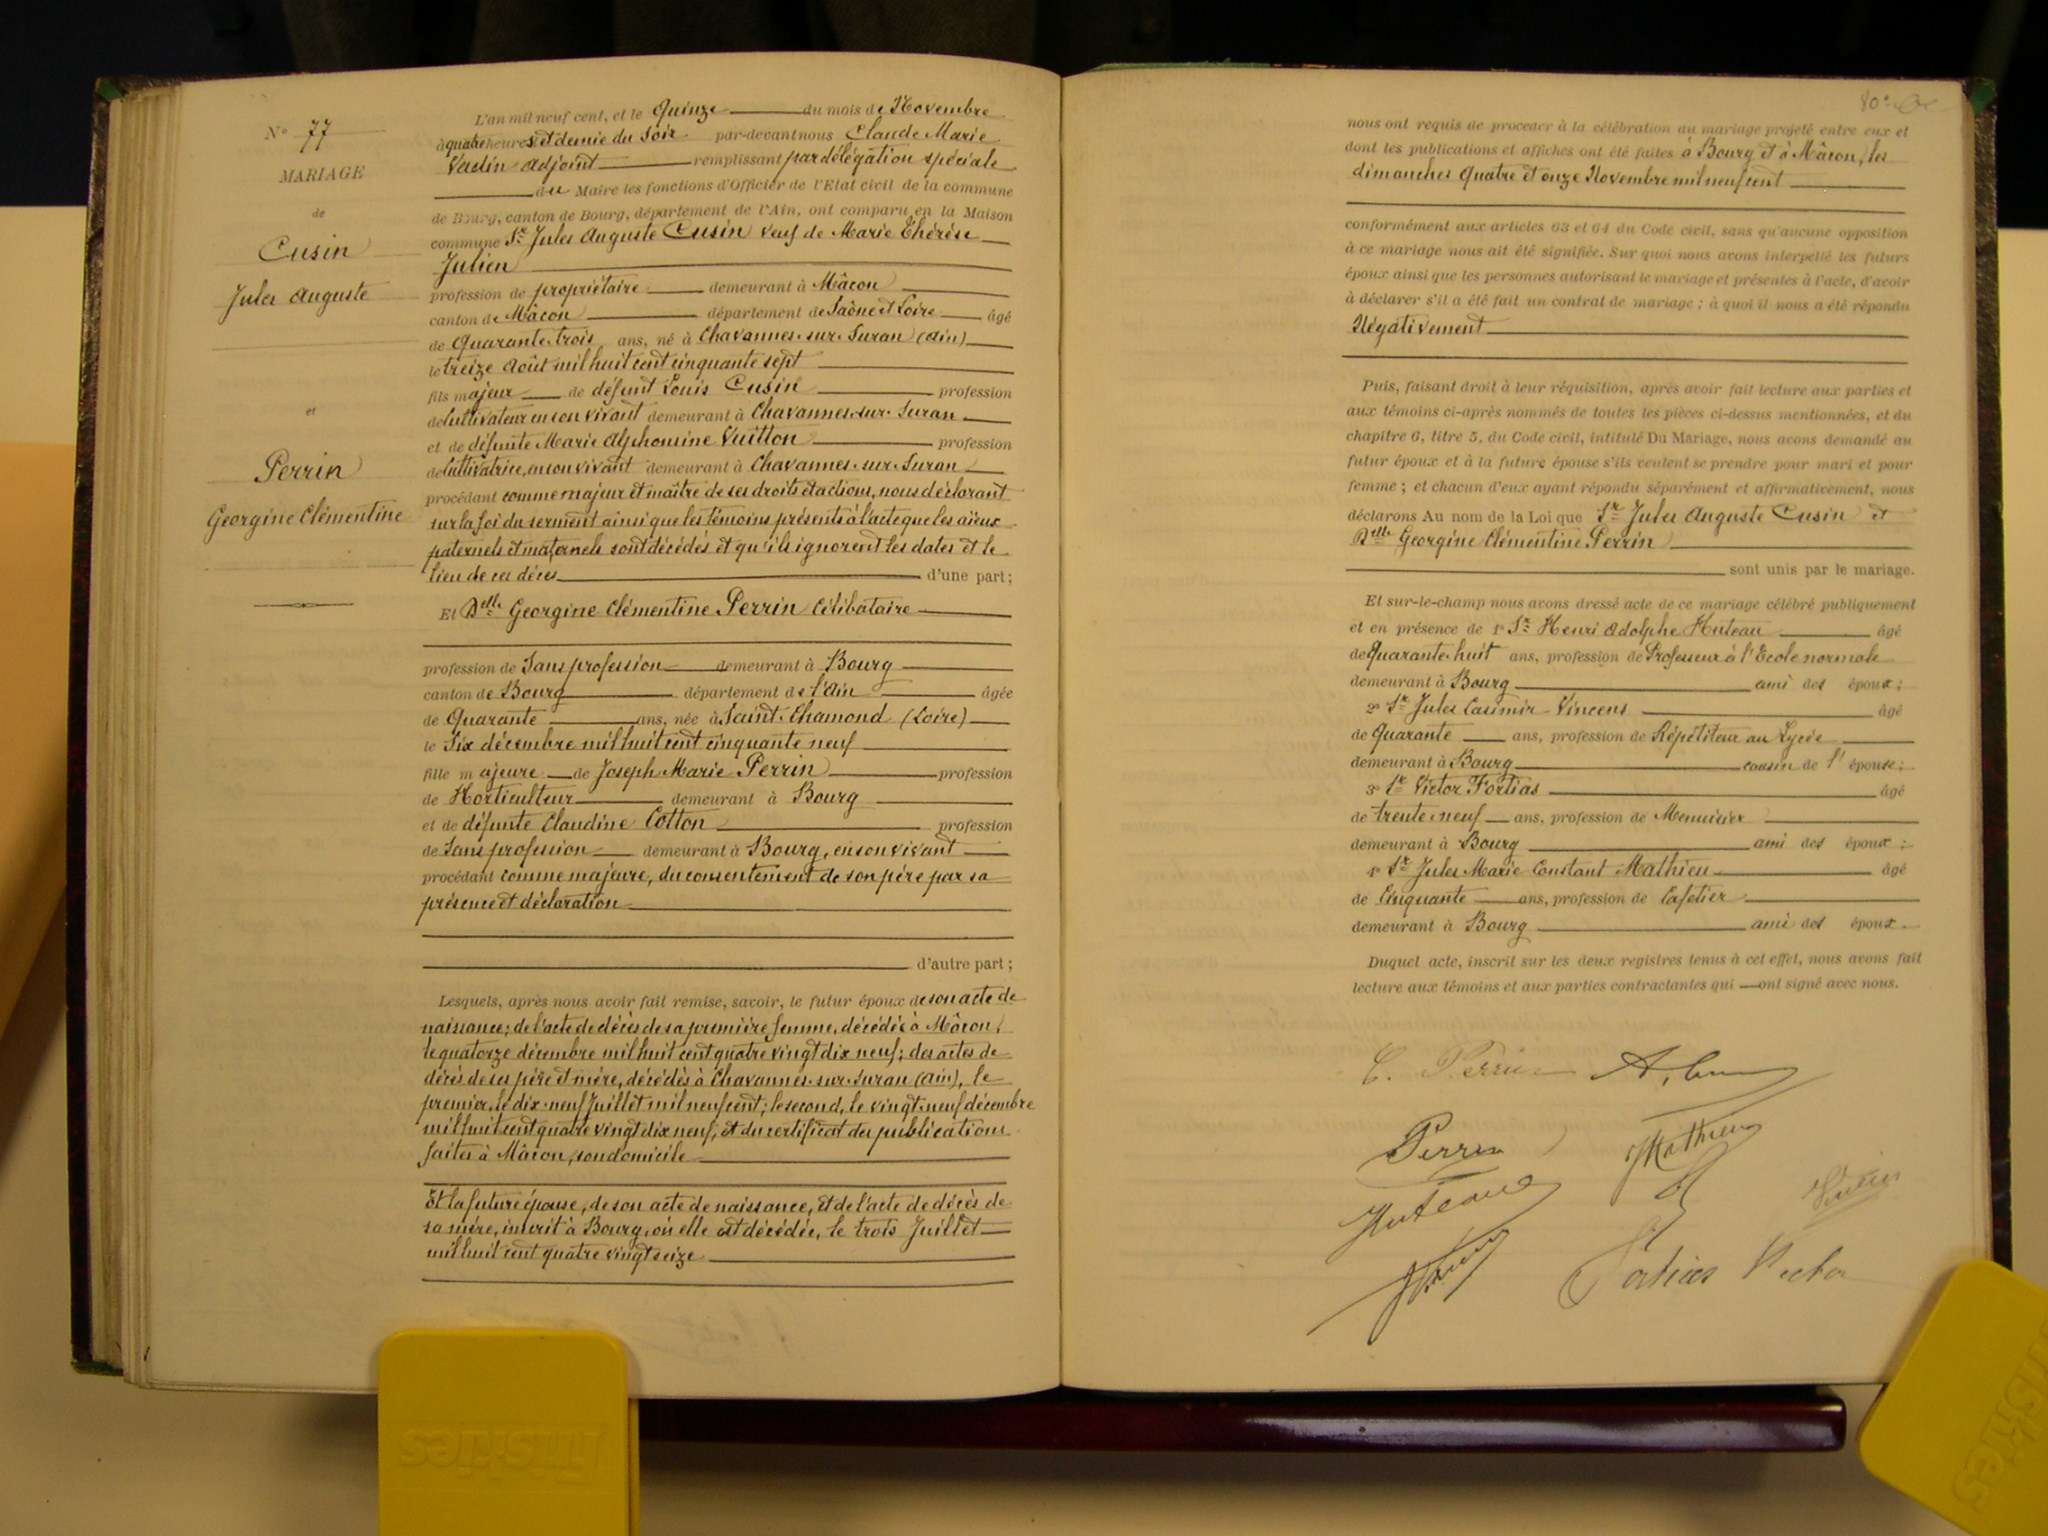 N° 77
MARIAGE
de
Cusin
Jules Auguste
et
Perrin
Georgine Clémentine
L'an mil neuf cent, et le Quinze du mois de Novembre
à quatre heures et demie du soir par-devant nous Claude Marie
adjoint remplissant par délégation spéciale
du Maire les fonctions d'Officier de l'Etat civil de la commune
de Bourg, canton de Bourg, département de l'Ain, ont comparu en la Maison
commune Sr Jules Auguste Cusin veuf de Marie Thérèse
Julien
profession de propriétaire demeurant à Mâcon
canton de Mâcon département de Saône et Loire âgé
de Quarante trois ans, né à Chavannes-sur-Suran (Ain)
le treize Août mil huit cent cinquante sept
fils majeur de défunt Louis Cusin profession
de Cultivateur en son vivant demeurant à Chavannes-sur-Suran
et de défunte Marie Alphonsine Vuitton profession
de Cultivatrice, en son vivant demeurant à Chavannes-sur-Suran
procédant comme majeur et maître de ses droits et actions, nous déclarant
sur la foi du serment ainsi que les témoins présents à l'acte que les aïeux
paternels et maternels sont décédés et qu'ils ignorent les dates et le
lieu de ces décès d'une part;
Et Delle Georgine Clémentine Perrin Célibataire
profession de Sans profession demeurant à Bourg
canton de Bourg département de l'Ain âgée
de Quarante ans, née à Saint-Chamond (Loire)
le Six décembre mil huit cent cinquante neuf
fille majeure de Joseph Marie Perrin profession
de Horticulteur demeurant à Bourg
et de défunte Claudine Cotton profession
de Sans profession demeurant à Bourg, en son vivant
procédant comme majeure, du consentement de son père par sa
présence et déclaration
d'autre part;
Lesquels, après nous avoir fait remise, savoir, le futur époux de son acte de
naissance; de l'acte de décès de sa première femme, décédée à Mâcon,
le quatorze décembre mil huit cent quatre vingt dix neuf; des actes de
décès de ses père et mère, décédés à Chavannes-sur-Suran (Ain), le
premier, le dix-neuf Juillet mil neuf cent; le second, le vingt-neuf décembre
mil huit cent quatre vingt dix neuf; et du certificat des publications
faites à Mâcon, son domicile
Et la future épouse, de son acte de naissance, et de l'acte de décès de
sa mère, inscrit à Bourg, où elle est décédée, le trois Juillet
mil huit cent quatre vingt seize
80e
nous ont requis de procéder à la célébration du mariage projeté entre eux et
dont les publications et affiches ont été faites à Bourg et à Mâcon, les
dimanches Quatre et onze Novembre mil neuf cent
conformément aux articles 63 et 64 du Code civil, sans qu'aucune opposition
à ce mariage nous ait été signifiée. Sur quoi nous avons interpellé les futurs
époux ainsi que les personnes autorisant le mariage et présentes à l'acte, d'avoir
à déclarer s'il a été fait un contrat de mariage; à quoi il nous a été répondu
Négativement
Puis, faisant droit à leur réquisition, après avoir fait lecture aux parties et
aux témoins ci-après nommés de toutes les pièces ci-dessus mentionnées, et du
chapitre 6, titre 5, du Code civil, intitulé Du Mariage, nous avons demandé au
futur époux et à la future épouse s'ils veulent se prendre pour mari et pour
femme; et chacun d'eux ayant répondu séparément et affirmativement, nous
déclarons Au nom de la Loi que Sr Jules Auguste Cusin et
Delle Georgine Clémentine Perrin
sont unis par le mariage.
Et sur-le-champ nous avons dressé acte de ce mariage célébré publiquement
et en présence de 1° Sr Henri Adolphe Huteau âgé
de Quarante-huit ans, profession de Professeur à l'Ecole normale
demeurant à Bourg ami des époux;
2° Sr Jules Casimir Vincens âgé
de Quarante ans, profession de Répétiteur au Lycée
demeurant à Bourg cousin de l'épouse;
3° Sr Victor Fortias âgé
de trente-neuf ans, profession de Menuisier
demeurant à Bourg ami des époux;
4° Sr Jules Marie Constant Mathieu âgé
de Cinquante ans, profession de Cafetier
demeurant à Bourg ami des époux.
Duquel acte, inscrit sur les deux registres tenus à cet effet, nous avons fait
lecture aux témoins et aux parties contractantes qui ont signé avec nous.
C. Perrin
Perrin
Mathieu
Huteau
Fortias Victor